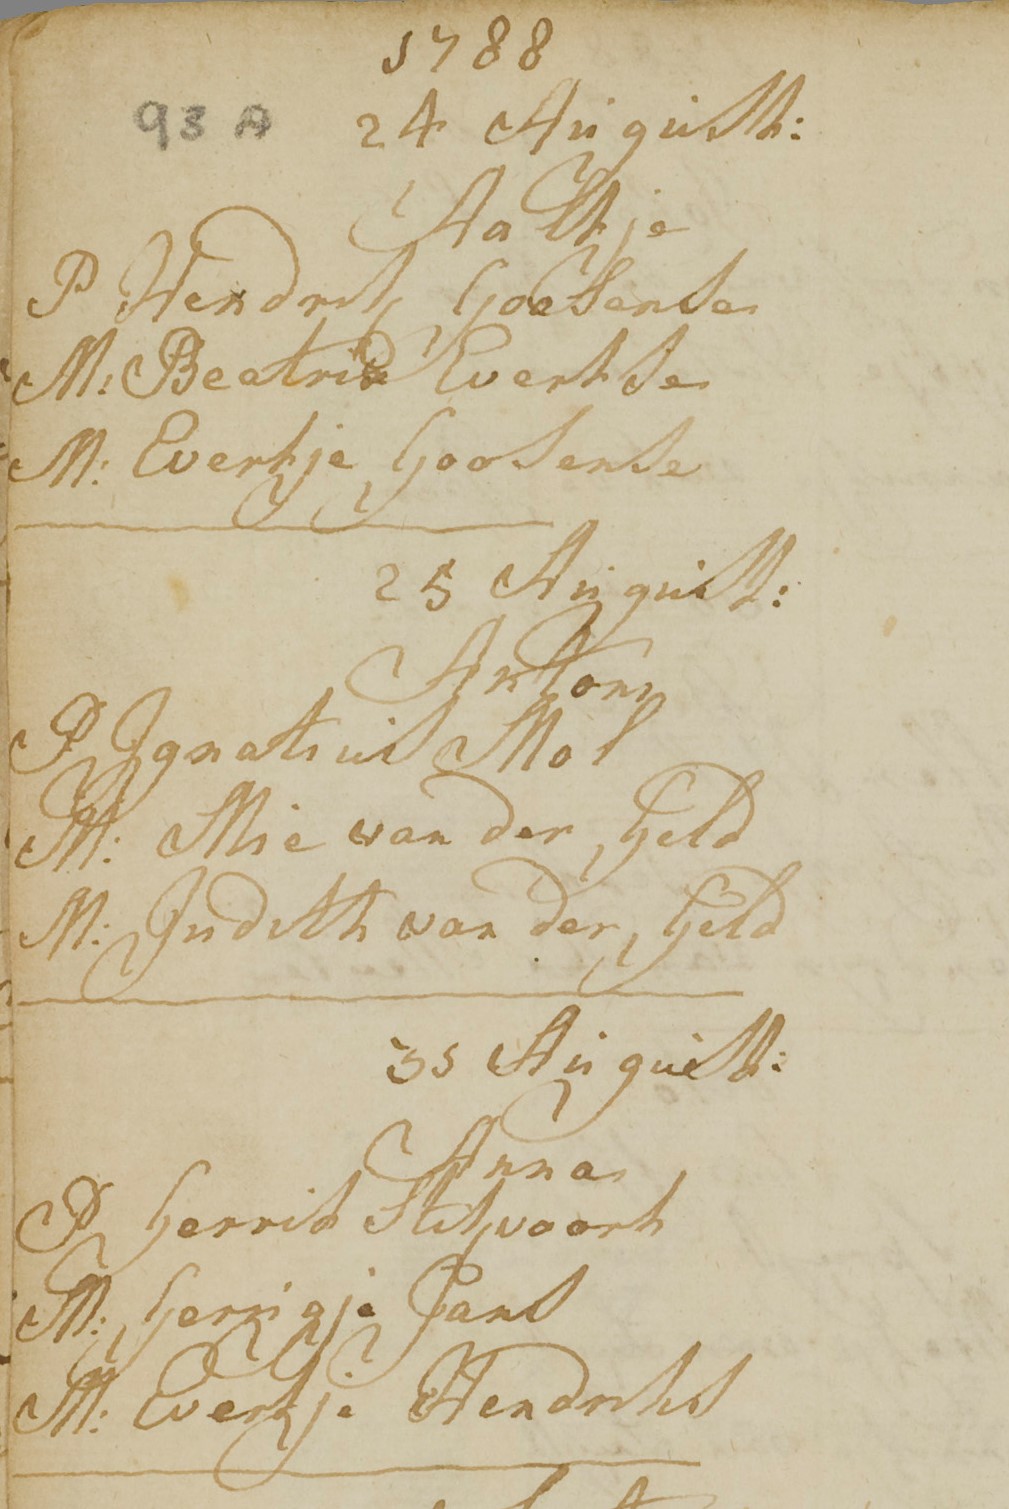 1788
93 A 24 August:
Aaltje
P Hendrik Goosense
M: Beatrix Evertse
M: Evertje Goosense
25 August:
Antony
P Ignatius Mol
M: Mie van der Geld
M: Judith van der Geld
31 August:
Anna
P Gerrit Stitvoort
M: Gerrigje Jans
M: Evertje Hendriks